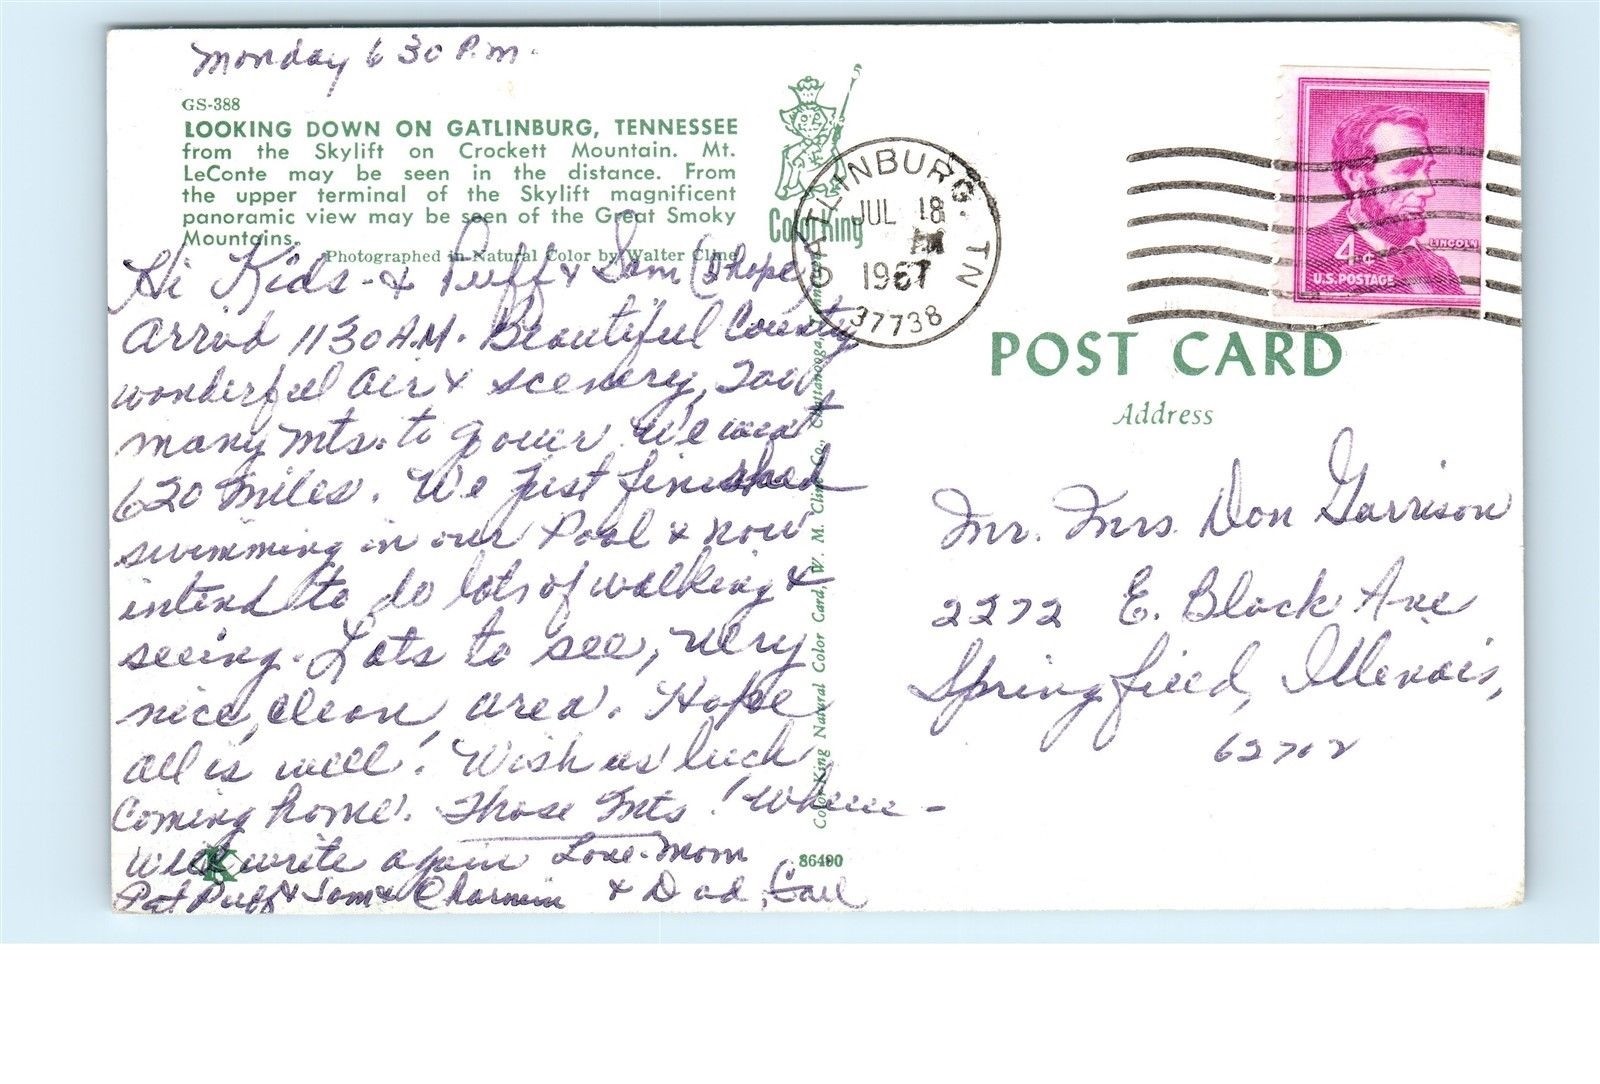 Monday 6 30 P.M.
GS-388
LOOKING DOWN ON GATLINBURG, TENNESSEE
from the Skylift on Crockett Mountain. Mt.
LeConte may be seen in the distance. From
the upper terminal of the Skylift magnificent
panoramic view may be seen of the Great Smoky
Mountains.
Photographed in Natural Color by Walter Cline
Color King
Hi Kids - & Puff & Sam (I hope)
Arrivd 11 30 A.M. Beautiful Country
wonderful air & scenery, Too
many Mts. to go over. We went
620 miles. We just finished
swimming in our Pool & now
intend to do lots of walking &
seeing. Lots to see, very
nice, clean area. Hope
all is well! Wish us luck
coming home. Those Mts! Wheee -
Will write again Love - Mom
& Dad, Gail
Pat Puff & Sam & Charmin
K
Color-King Natural Color Card, W. M. Cline Co., Chattanooga, Tennessee
86490
GATLINBURG, TN
JUL 18
1967
37738
4¢
LINCOLN
U.S. POSTAGE
POST CARD
Address
Mr. Mrs. Don Garrison
2272 E. Black Ave
Springfield, Illinois,
62702